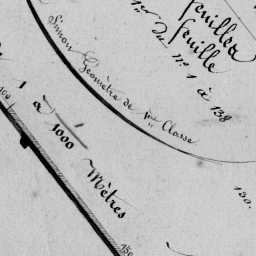 feuillet
feuille
1er du no. 1 à 138
Simon Géomètre de 1ère Classe
1 à 1000 Mètres
100
150
130.